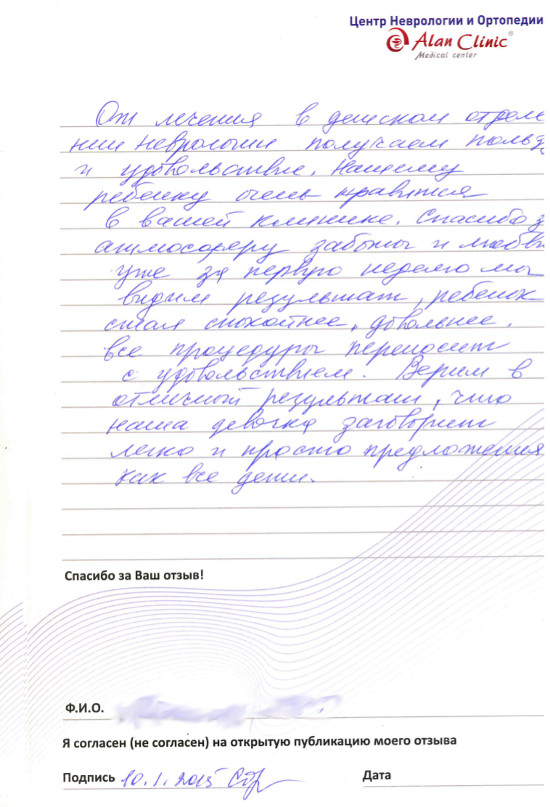 Центр Неврологии и Ортопедии
Alan Clinic®
Medical center
От лечения в детском отделе
нии неврологии получаем пользу
и удовольствие. Нашему
ребенку очень нравится
в вашей клинике. Спасибо з
атмосферу заботы и любви
уже за первую неделю мы
видим результат, ребенок
стал спокойнее, довольнее,
все процедуры переносит
с удовольствием. Верим в
отличный результат, что
наша девочка заговорит
легко и просто предложениям
как все дети.
Спасибо за Ваш отзыв!
Ф.И.О.
Я согласен (не согласен) на открытую публикацию моего отзыва
Подпись 10.1.2015 Дата